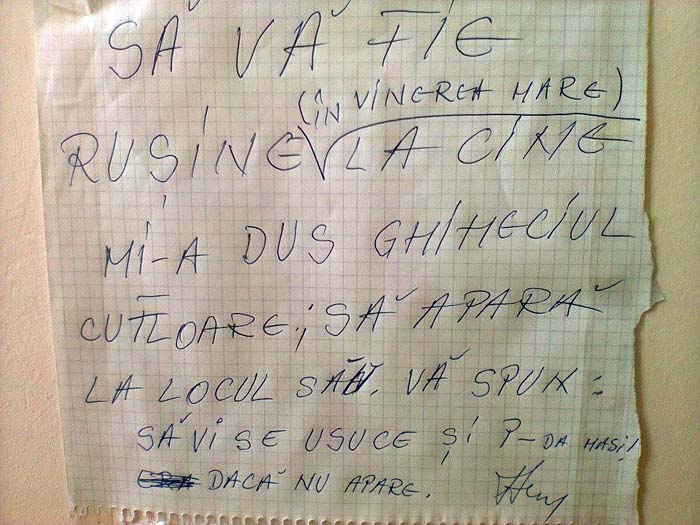 SĂ VĂ FIE
(ÎN VINEREA MARE)
RUȘINE LA CINE
MI-A DUS GHIHECIUL
CU FLOARE; SĂ APARĂ
LA LOCUL SĂU. VĂ SPUN:
SĂ VI SE USUCE ȘI P-DA MASII
DACĂ NU APARE.